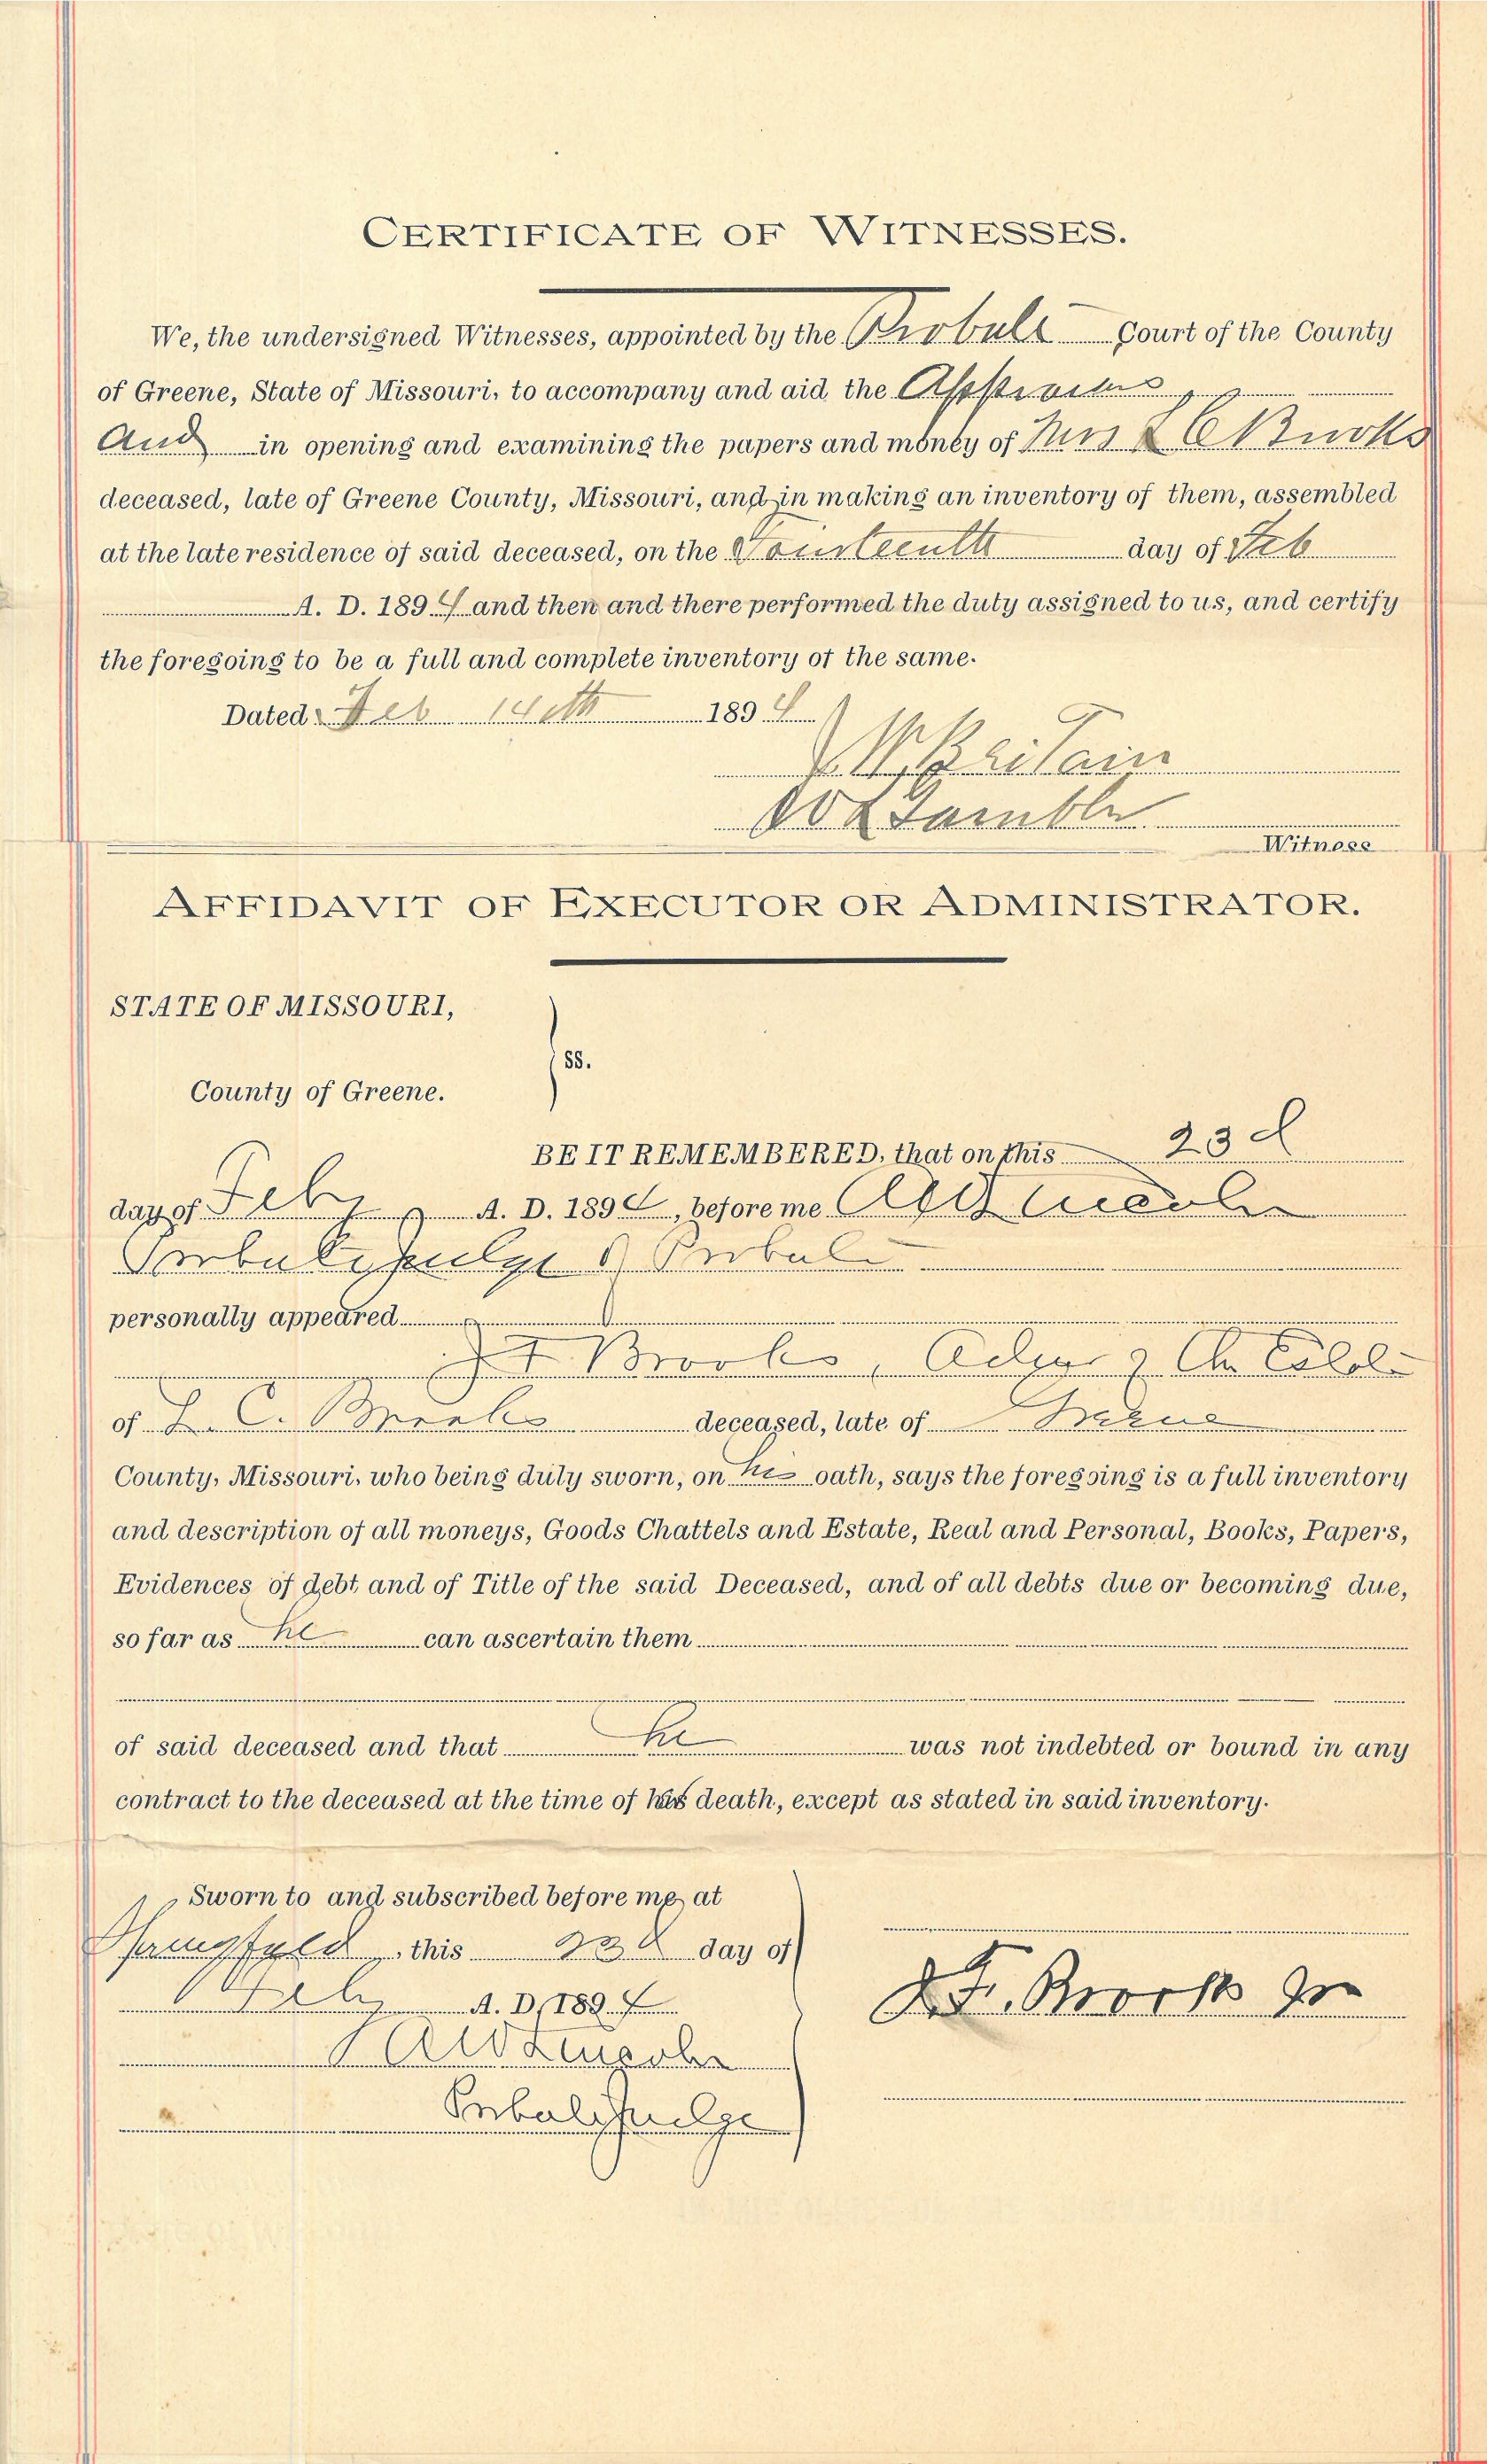 CERTIFICATE OF WITNESSES.
We, the undersigned Witnesses, appointed by the Probate Court of the County
of Greene, State of Missouri, to accompany and aid the
And in opening and examining the papers and money of Mrs L C Brooks
deceased, late of Greene County, Missouri, and in making an inventory of them, assembled
at the late residence of said deceased, on the Fourteenth day of Feb
A. D. 1894 and then and there performed the duty assigned to us, and certify
the foregoing to be a full and complete inventory of the same.
Dated Feb 14th 1894
Britain
Gamble
Witness
AFFIDAVIT OF EXECUTOR OR ADMINISTRATOR.
STATE OF MISSOURI,
ss.
County of Greene.
BE IT REMEMBERED, that on this 23d
day of Feby A. D. 1894, before me
Probate Judge of Probate
personally appeared
Brooks, of the Estate
of L. C. Brooks deceased, late of Greene
County, Missouri, who being duly sworn, on his oath, says the foregoing is a full inventory
and description of all moneys, Goods Chattels and Estate, Real and Personal, Books, Papers,
Evidences of debt and of Title of the said Deceased, and of all debts due or becoming due,
so far as he can ascertain them
of said deceased and that he was not indebted or bound in any
contract to the deceased at the time of her death, except as stated in said inventory.
Sworn to and subscribed before me, at
Springfield, this 23d day of
Feby A. D. 1894
Probate Judge
Brooks Jr